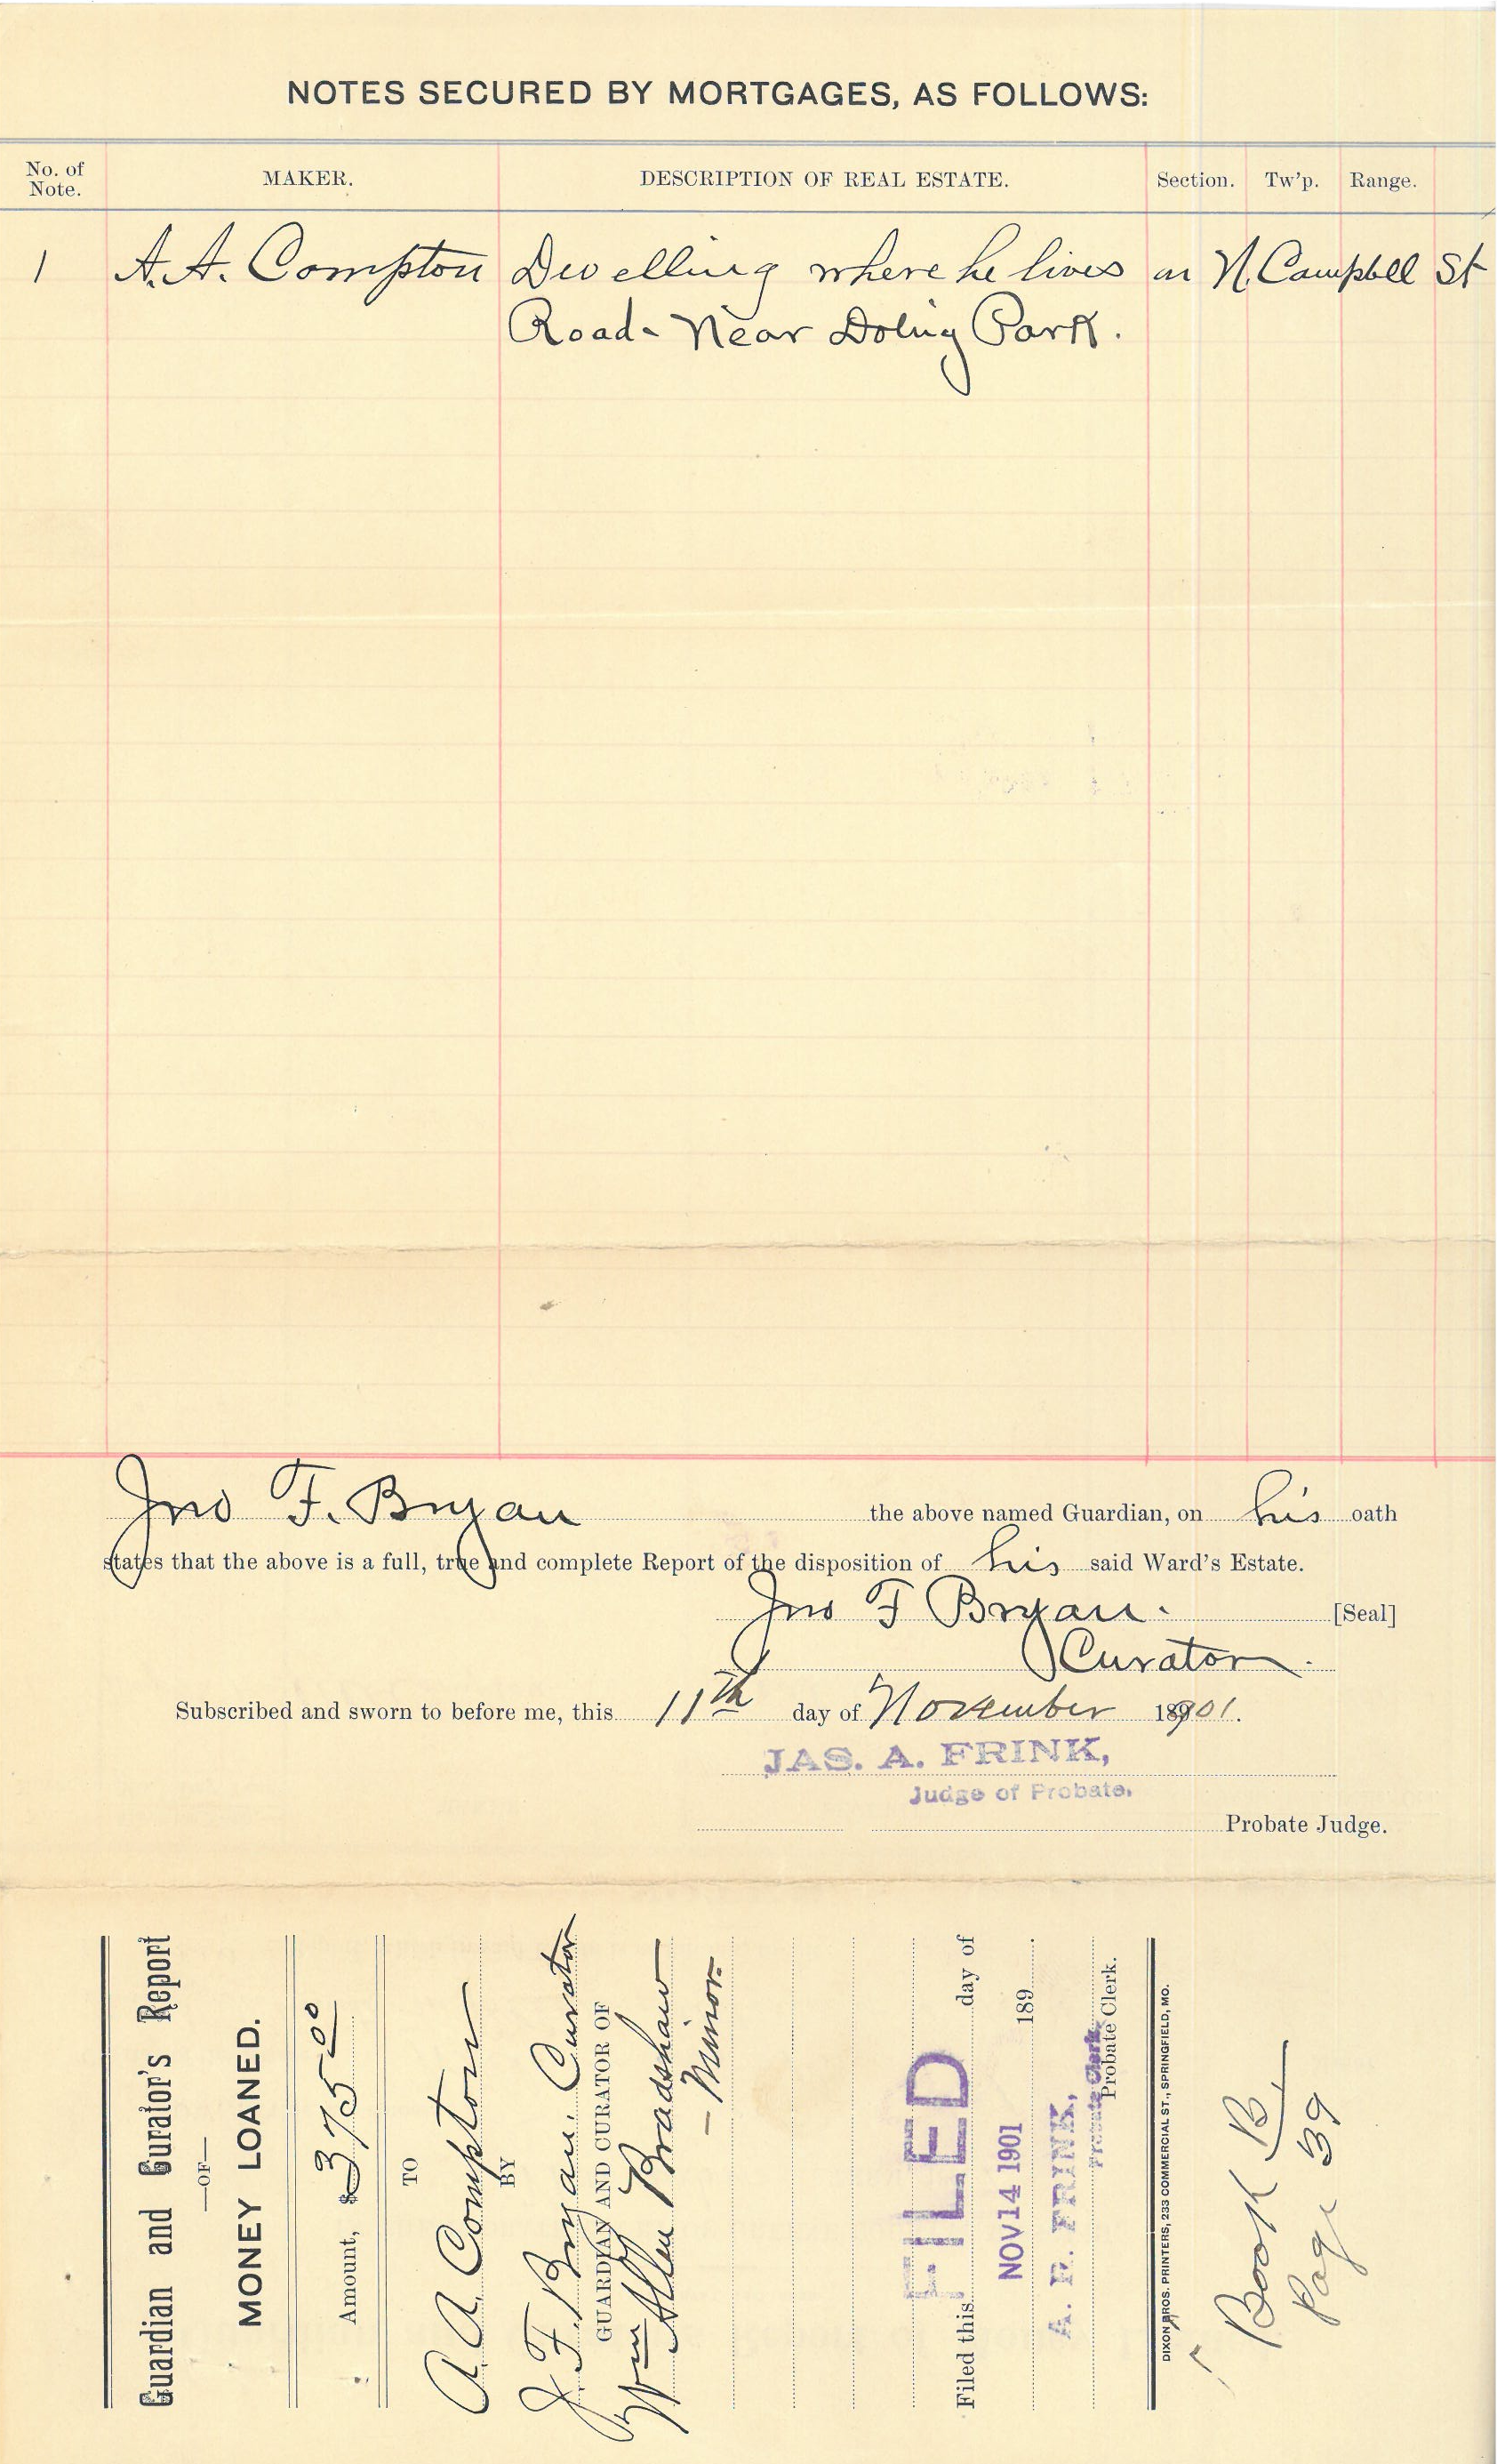 NOTES SECURED BY MORTGAGES, AS FOLLOWS:
No. of Note. MAKER. DESCRIPTION OF REAL ESTATE. Section. Tw'p. Range.
1 A. A. Compton Dwelling where he lives on N. Campbell St
Road - Near Doling Park.
Jno F. Bryan the above named Guardian, on his oath
states that the above is a full, true and complete Report of the disposition of his said Ward's Estate.
Jno F Bryan. [Seal]
Curator.
Subscribed and sworn to before me, this 11th day of November 1901.
JAS. A. FRINK,
Judge of Probate.
Probate Judge.
Guardian and Curator's Report
—OF—
MONEY LOANED.
Amount, $375 00
TO
A A Compton
BY
J. F. Bryan. Curator
GUARDIAN AND CURATOR OF
Wm Allen Bradshaw
- Minor.
FILED
Filed this day of
NOV 14 1901 189
A. R. FRINK,
Probate Clerk.
Probate Clerk.
DIXON BROS. PRINTERS, 233 COMMERCIAL ST., SPRINGFIELD, MO.
Book B
Page 39